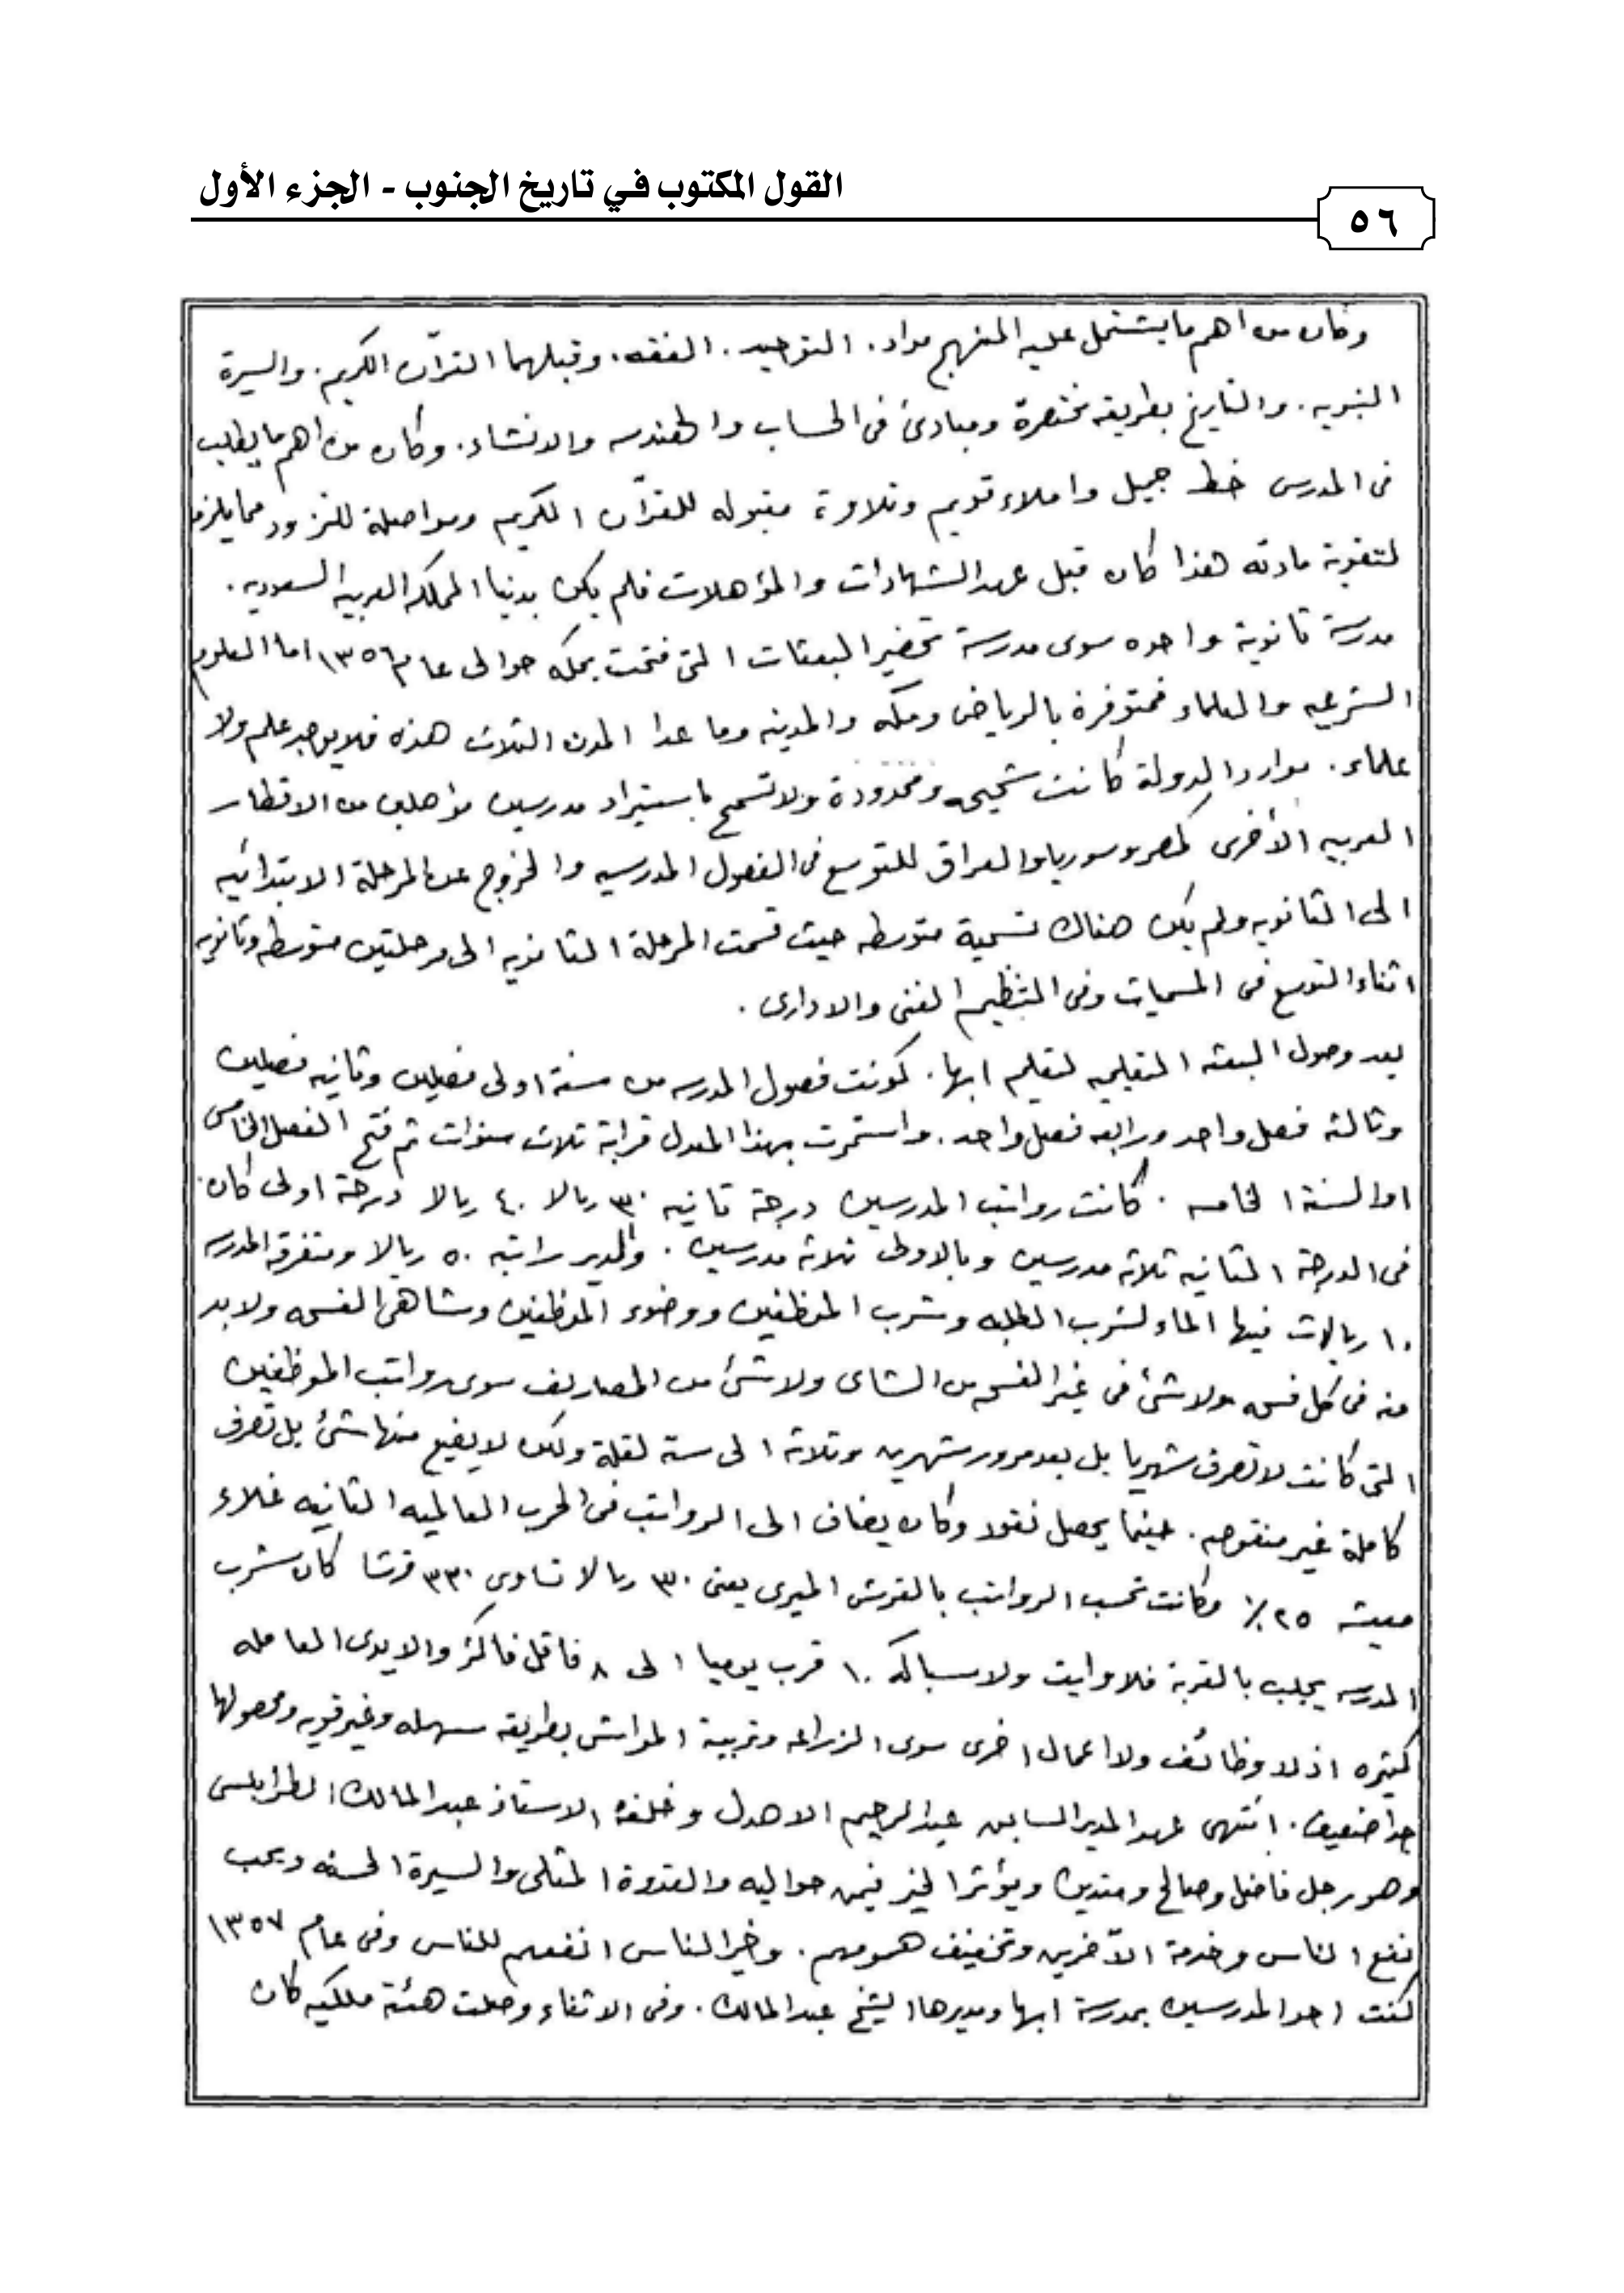 القول المكتوب في تاريخ الجنوب - الجزء الأول
٥٦
وكان من اهم ما يشتمل عليه المنهج مواد. التوحيد. الفقه. وقبلهما القرآن الكريم. والسيرة
النبويه. والتاريخ بطريقه مختصرة ومبادئ فى الحساب والهندسه والانشاء. وكان من اهم ما يطلب
فى المدرس خط جميل واملاء قويم وتلاوة مقبوله للقرآن الكريم ومواصلة للتزود مما يلزم
لتقوية مادته هذا كان قبل عهد الشهادات والمؤهلات فلم يكن بدنيا المملكه العربيه السعوديه.
مدرسة ثانوية واحده سوى مدرسة تحضير البعثات التى فتحت بمكه حوالى عام ١٣٥٦ اما العلوم
الشرعيه والعلماء فمتوفرة بالرياض ومكه والمدينه وما عدا المدن الثلاث هذه فلا يوجد علم ولا
علماء. موارد الدولة كانت شحيحه ومحدودة ولا تسمح باستيراد مدرسين مؤهلين من الاقطار
العربيه الأخرى كمصر وسوريا والعراق للتوسع فى الفصول المدرسيه والخروج عن المرحلة الابتدائيه
الى الثانويه ولم يكن هناك تسمية متوسطه حيث قسمت المرحلة الثانويه الى مرحلتين متوسطه وثانويه
اثناء التوسع فى المسميات وفى التنظيم الفنى والادارى.
بعد وصول البعثه التعليميه لتعليم ابها. كونت فصول المدرسه من سنة اولى فصيلين وثانيه فصيلين
وثالثه فصل واحد ورابعه فصل واحد. واستمرت بهذا المعدل قرابة ثلاث سنوات ثم فتح الفصل الخامس
او السنة الخامسه. كانت رواتب المدرسين درجة ثانيه ٣٠ ريالا ٤٠ ريالا درجة اولى كان
فى الدرجة الثانيه ثلاثه مدرسين وبالاولى ثلاثه مدرسين. والمدير راتبه ٥٠ ريالا ومتفرقه المدرسه
١٠ ريالات فيها الماء لشرب الطلبه وشرب الموظفين ووضوء الموظفين وشاهى الفسحه ولا بد
منه فى كل فسحه ولا شئ فى غير الفسحه من الشاى ولا شئ من المصاريف سوى رواتب الموظفين
التى كانت لا تصرف شهريا بل بعد مرور شهرين وثلاثه الى ستة لقلة ولكن لا يضيع منها شئ بل تصرف
كاملة غير منقوصه. حينما يحصل نقود وكان يضاف الى الرواتب فى الحرب العالميه الثانيه غلاء
معيشه ٢٥٪ وكانت تحسب الرواتب بالقرش الميرى يعنى ٣٠ ريالا تساوى ٣٣٠ قرشا كان شرب
المدرسه يجلب بالقربة فلا وايت ولا سباكه ١٠ قرب يوميا الى ٨ فاقل فاكثر والايدى العامله
كثيره اذ لا وظائف ولا اعمال اخرى سوى الزراعه وتربية المواشى بطريقه سهله وغير قويه ومحصولها
جدا ضعيف. انتهى عهد المدير السابق عبدالرحيم الاهدل وخلفه الاستاذ عبد المالك الطرابلسى
وهو رجل فاضل وصالح ومتدين ويؤثر الخير فيمن حواليه والقدوة المثلى والسيرة الحسنه ويحب
نفع الناس وخدمة الآخرين وتخفيف همومهم. وخير الناس انفعهم للناس وفى عام ١٣٥٧
كنت احد المدرسين بمدرسة ابها ومديرها الشيخ عبد المالك. وفى الاثناء وصلت هئة ملكيه كان